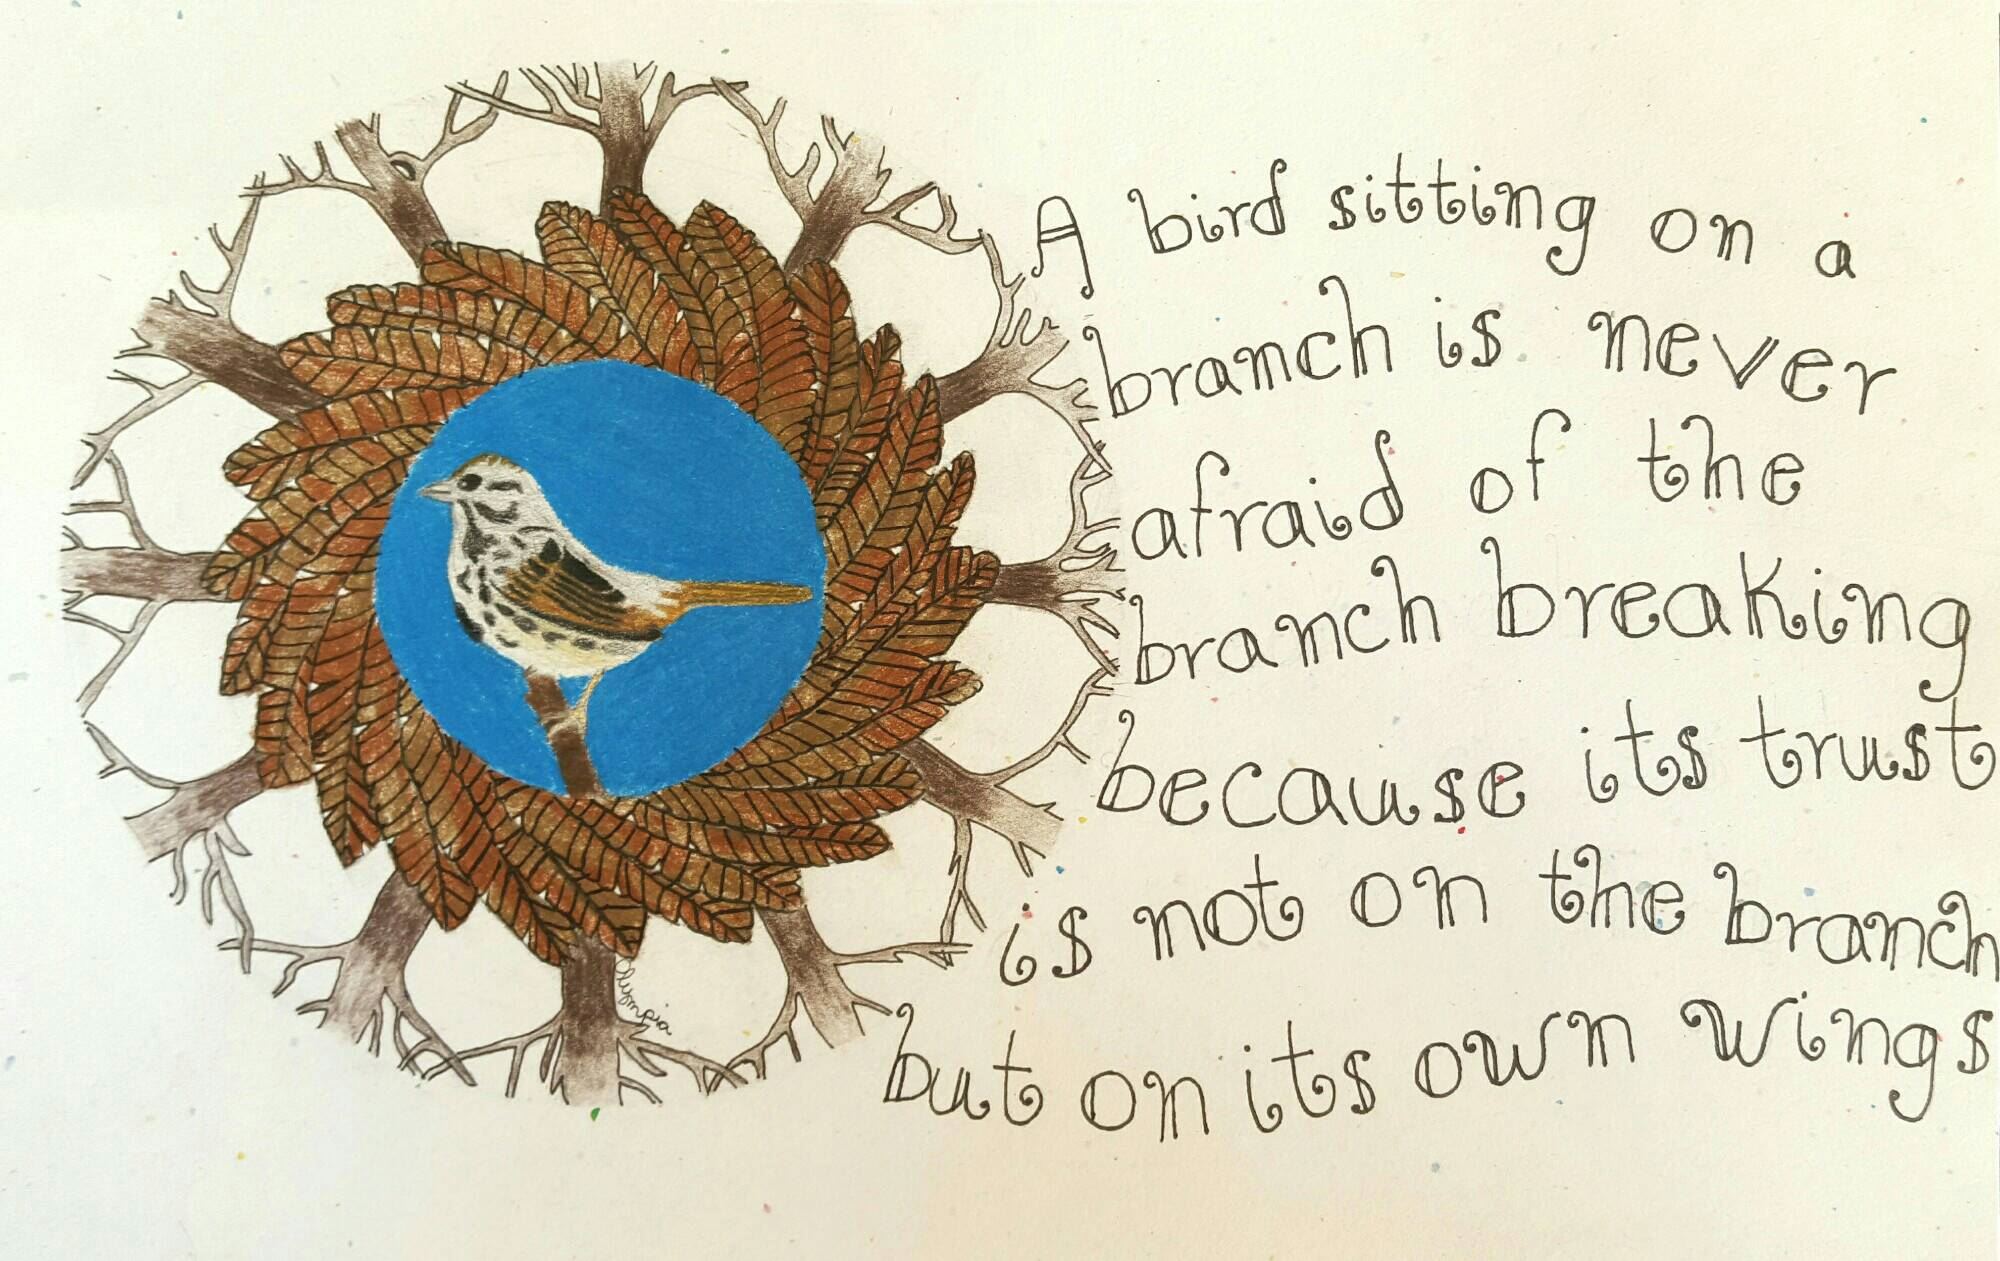 A bird sitting on a
branch is never
afraid of the
branch breaking
because its trust
is not on the branch
but on its own wings
Olympia